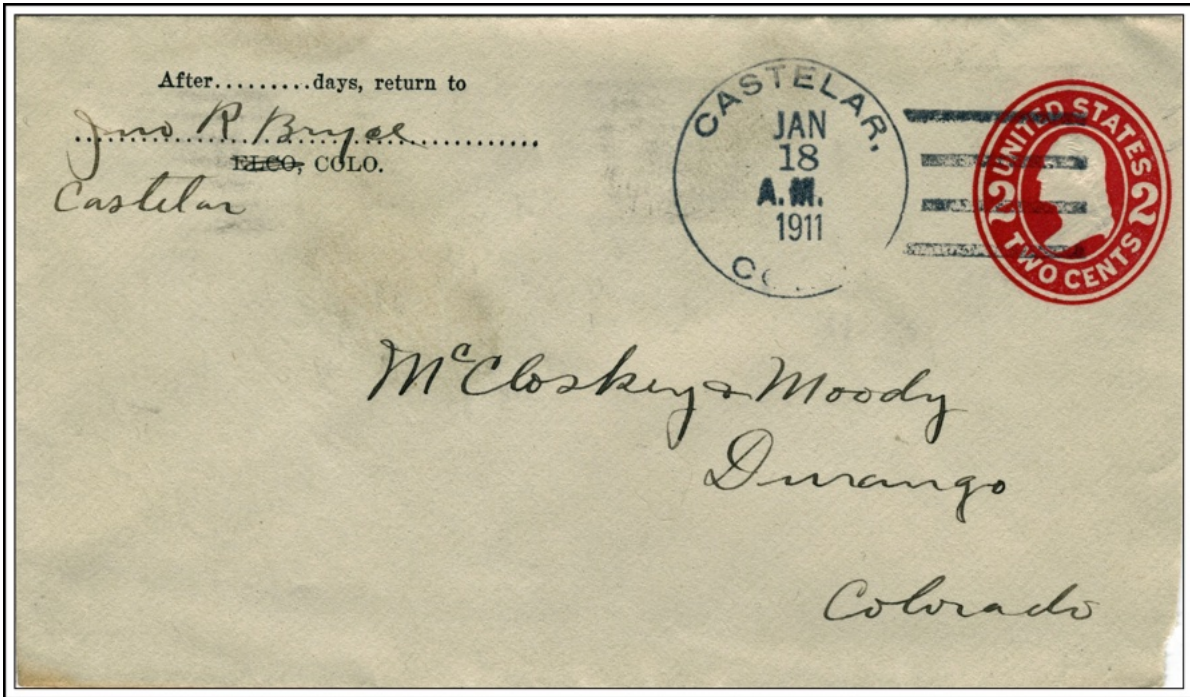 After.........days, return to
Jno R. Bryce
ELCO, COLO.
Castelar
CASTELAR,
JAN
18
A.M.
1911
UNITED STATES
2 2
TWO CENTS
McCloskey & Moody
Durango
Colorado